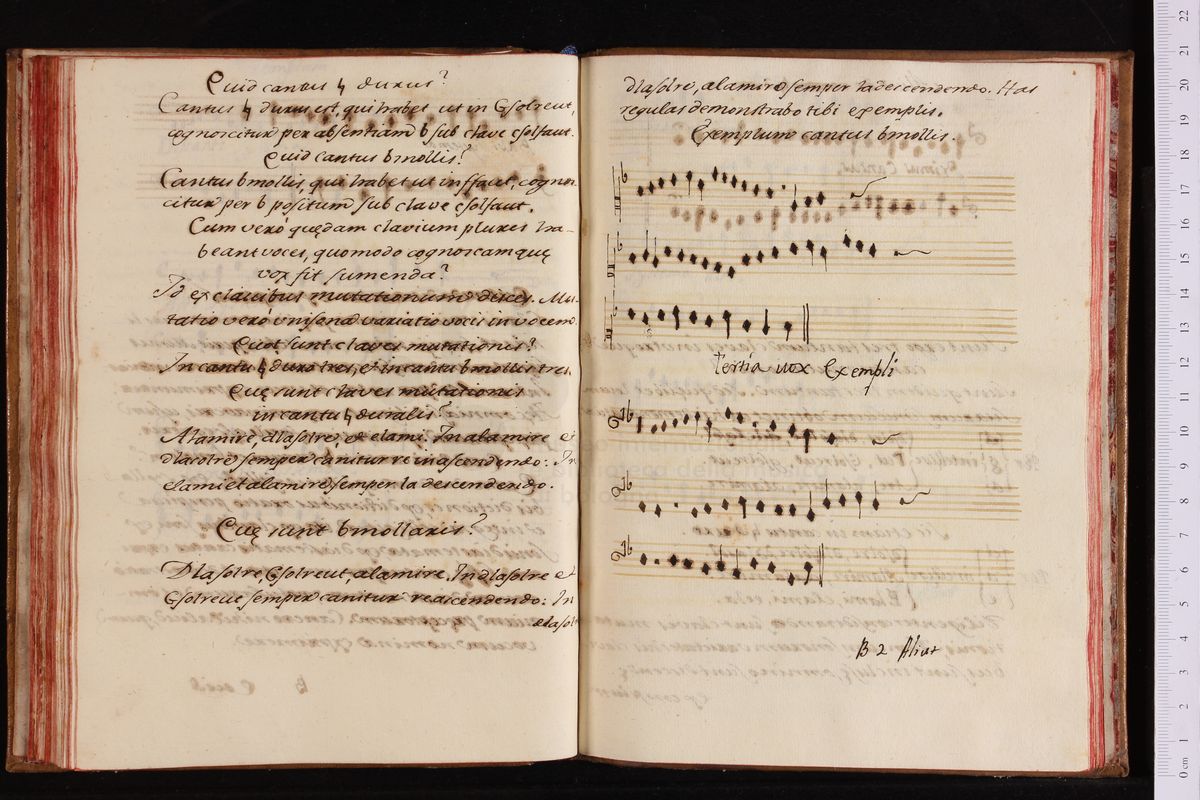 Quid cantus ♮ durus?
Cantus ♮ durus est, qui habet ut in Gsolreut,
cognoscitur per absentiam b sub clave csolfaut.
Quid cantus bmollis?
Cantus bmollis, qui habet ut in ffaut, cognos
citur per b positum sub clave csolfaut.
Cum verò quędam clavium plures ha-
beant voces, quomodo cognoscam quę
vox sit sumenda?
Id ex clavibus mutationum disces. Mu-
tatio verò unisena variatio vocis in vocem.
Quot sunt claves mutationis?
In cantu ♮ duro tres, et in cantu bmollis tres.
Quę sunt claves mutationis
in cantu ♮ duralis?
Alamire, dlasolre, et elami. In alamire et
dlasolre semper canitur re in ascendendo: In
elami et alamire semper la descendendo.
Quę sunt bmollaris?
Dlasolre, Gsolreut, alamire. In dlasolre et
Gsolreut semper canitur re ascendendo: In
dlasol
dlasolre, alamire semper la descendendo. Has
regulas demonstrabo tibi exemplis.
Exemplum cantus bmollis.
tertia vox Exempli
B 2 Aliat